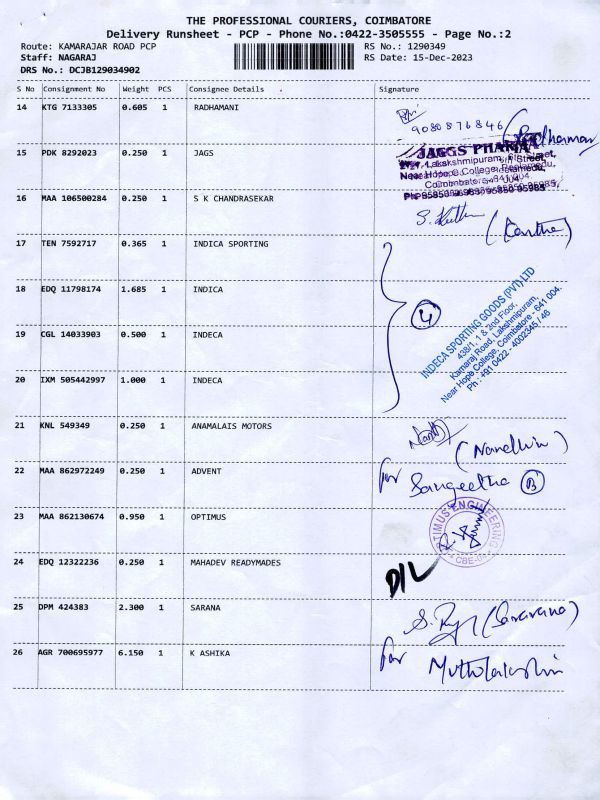 THE PROFESSIONAL COURIERS, COIMBATORE
Delivery Runsheet - PCP - Phone No.:0422-3505555 - Page No.:2
Route: KAMARAJAR ROAD PCP RS No.: 1290349
Staff: NAGARAJ RS Date: 15-Dec-2023
DRS No.: DCJB129034902
S No Consignment No Weight PCS Consignee Details Signature
14 KTG 7133305 0.605 1 RADHAMANI
9080876846
15 PDK 8292023 0.250 1 JAGS
JAGGS PHARMA
Lakakshmipuram, 5th Street,
Near Hope College, Peelamedu,
16 MAA 106500284 0.250 1 S K CHANDRASEKAR
17 TEN 7592717 0.365 1 INDICA SPORTING
18 EDQ 11798174 1.685 1 INDICA
4
INDECA SPORTING GOODS (PVT) LTD
438/1, 1 & 2nd Floor,
Kamaraj Road, Lakshmipuram,
Near Hope College, Coimbatore - 641 004.
Ph : +91 0422 - 4002345 / 46
19 CGL 14033903 0.500 1 INDECA
20 IXM 505442997 1.000 1 INDECA
21 KNL 549349 0.250 1 ANAMALAIS MOTORS
22 MAA 862972249 0.250 1 ADVENT
for Sangeetha B
23 MAA 862130674 0.950 1 OPTIMUS
OPTIMUS ENGINEERING
24 EDQ 12322236 0.250 1 MAHADEV READYMADES
D/L
25 DPM 424383 2.300 1 SARANA
(Saravana)
26 AGR 700695977 6.150 1 K ASHIKA
for Muthulakshmi